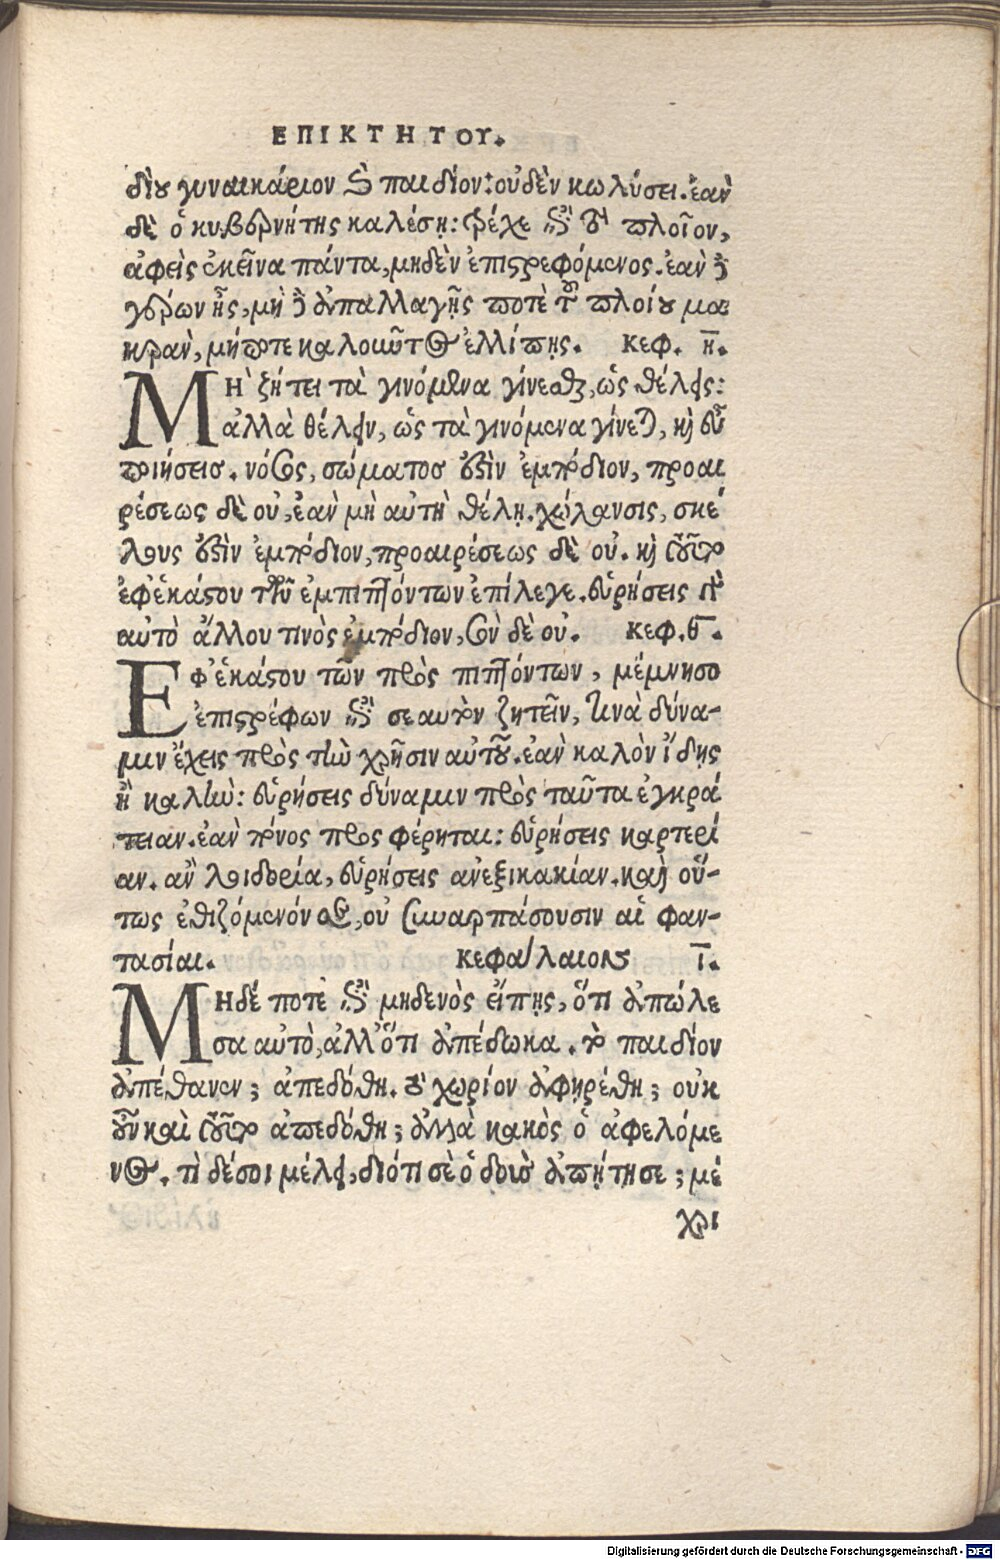 ΕΠΙΚΤΗΤΟΥ.
δίου γυναικάριον καὶ παιδίον: οὐδὲν κωλύσει. ἐὰν
δὲ ὁ κυβερνήτης καλέσῃ: τρέχε ἐπὶ τὸ πλοῖον,
ἀφεὶς ἐκεῖνα πάντα, μηδὲν ἐπιστρεφόμενος. ἐὰν δὲ
γέρων ᾖς, μὴ δὲ ἀπαλλαγῇς ποτὲ τοῦ πλοίου μα
κρὰν, μήποτε καλοῦντος ἐλλίπῃς. Κεφ. η̅.
ΜΗ ζήτει τὰ γινόμενα γίνεσθαι, ὡς θέλεις:
ἀλλὰ θέλειν, ὡς τὰ γινόμενα γίνεται, καὶ εὖ
ποιήσεις. νόσος, σώματος ἐστὶν ἐμπόδιον, προαι
ρέσεως δὲ οὐ, ἐὰν μὴ αὐτὴ θέλῃ. χώλανσις, σκέ
λους ἐστὶν ἐμπόδιον, προαιρέσεως δὲ οὐ. καὶ τοῦτο
ἐφ' ἑκάστου τῶν ἐμπιπτόντων ἐπίλεγε. εὑρήσεις γὰρ
αὐτὸ ἄλλου τινὸς ἐμπόδιον, σὸν δὲ οὐ. Κεφ. θ̅.
ΕΦ' ἑκάστου τῶν προσπιπτόντων, μέμνησο
ἐπιστρέφων ἐπὶ σεαυτὸν ζητεῖν, τίνα δύνα-
μιν ἔχεις πρὸς τὴν χρῆσιν αὐτοῦ. ἐὰν καλὸν ἴδῃς
ἢ καλὴν: εὑρήσεις δύναμιν πρὸς ταῦτα ἐγκρά
τειαν. ἐὰν πόνος προσφέρηται: εὑρήσεις καρτερί
αν. ἂν λοιδορία, εὑρήσεις ἀνεξικακίαν. καὶ οὕ-
τως ἐθιζόμενόν σε, οὐ συναρπάσουσιν αἱ φαν-
τασίαι. Κεφάλαιον ι̅.
ΜΗδέποτε ἐπὶ μηδενὸς εἴπῃς, ὅτι ἀπώλε
σα αὐτὸ, ἀλλ' ὅτι ἀπέδωκα. τὸ παιδίον
ἀπέθανεν; ἀπεδόθη. τὸ χωρίον ἀφῃρέθη; οὐκ
οὖν καὶ τοῦτο ἀπεδόθη; ἀλλὰ κακὸς ὁ ἀφελόμε
νος. τὶ δέ σοι μέλει, διότι σὲ ὁ δοὺς ἀπῄτησε; μέ
χρι
Digitalisierung gefördert durch die Deutsche Forschungsgemeinschaft - DFG